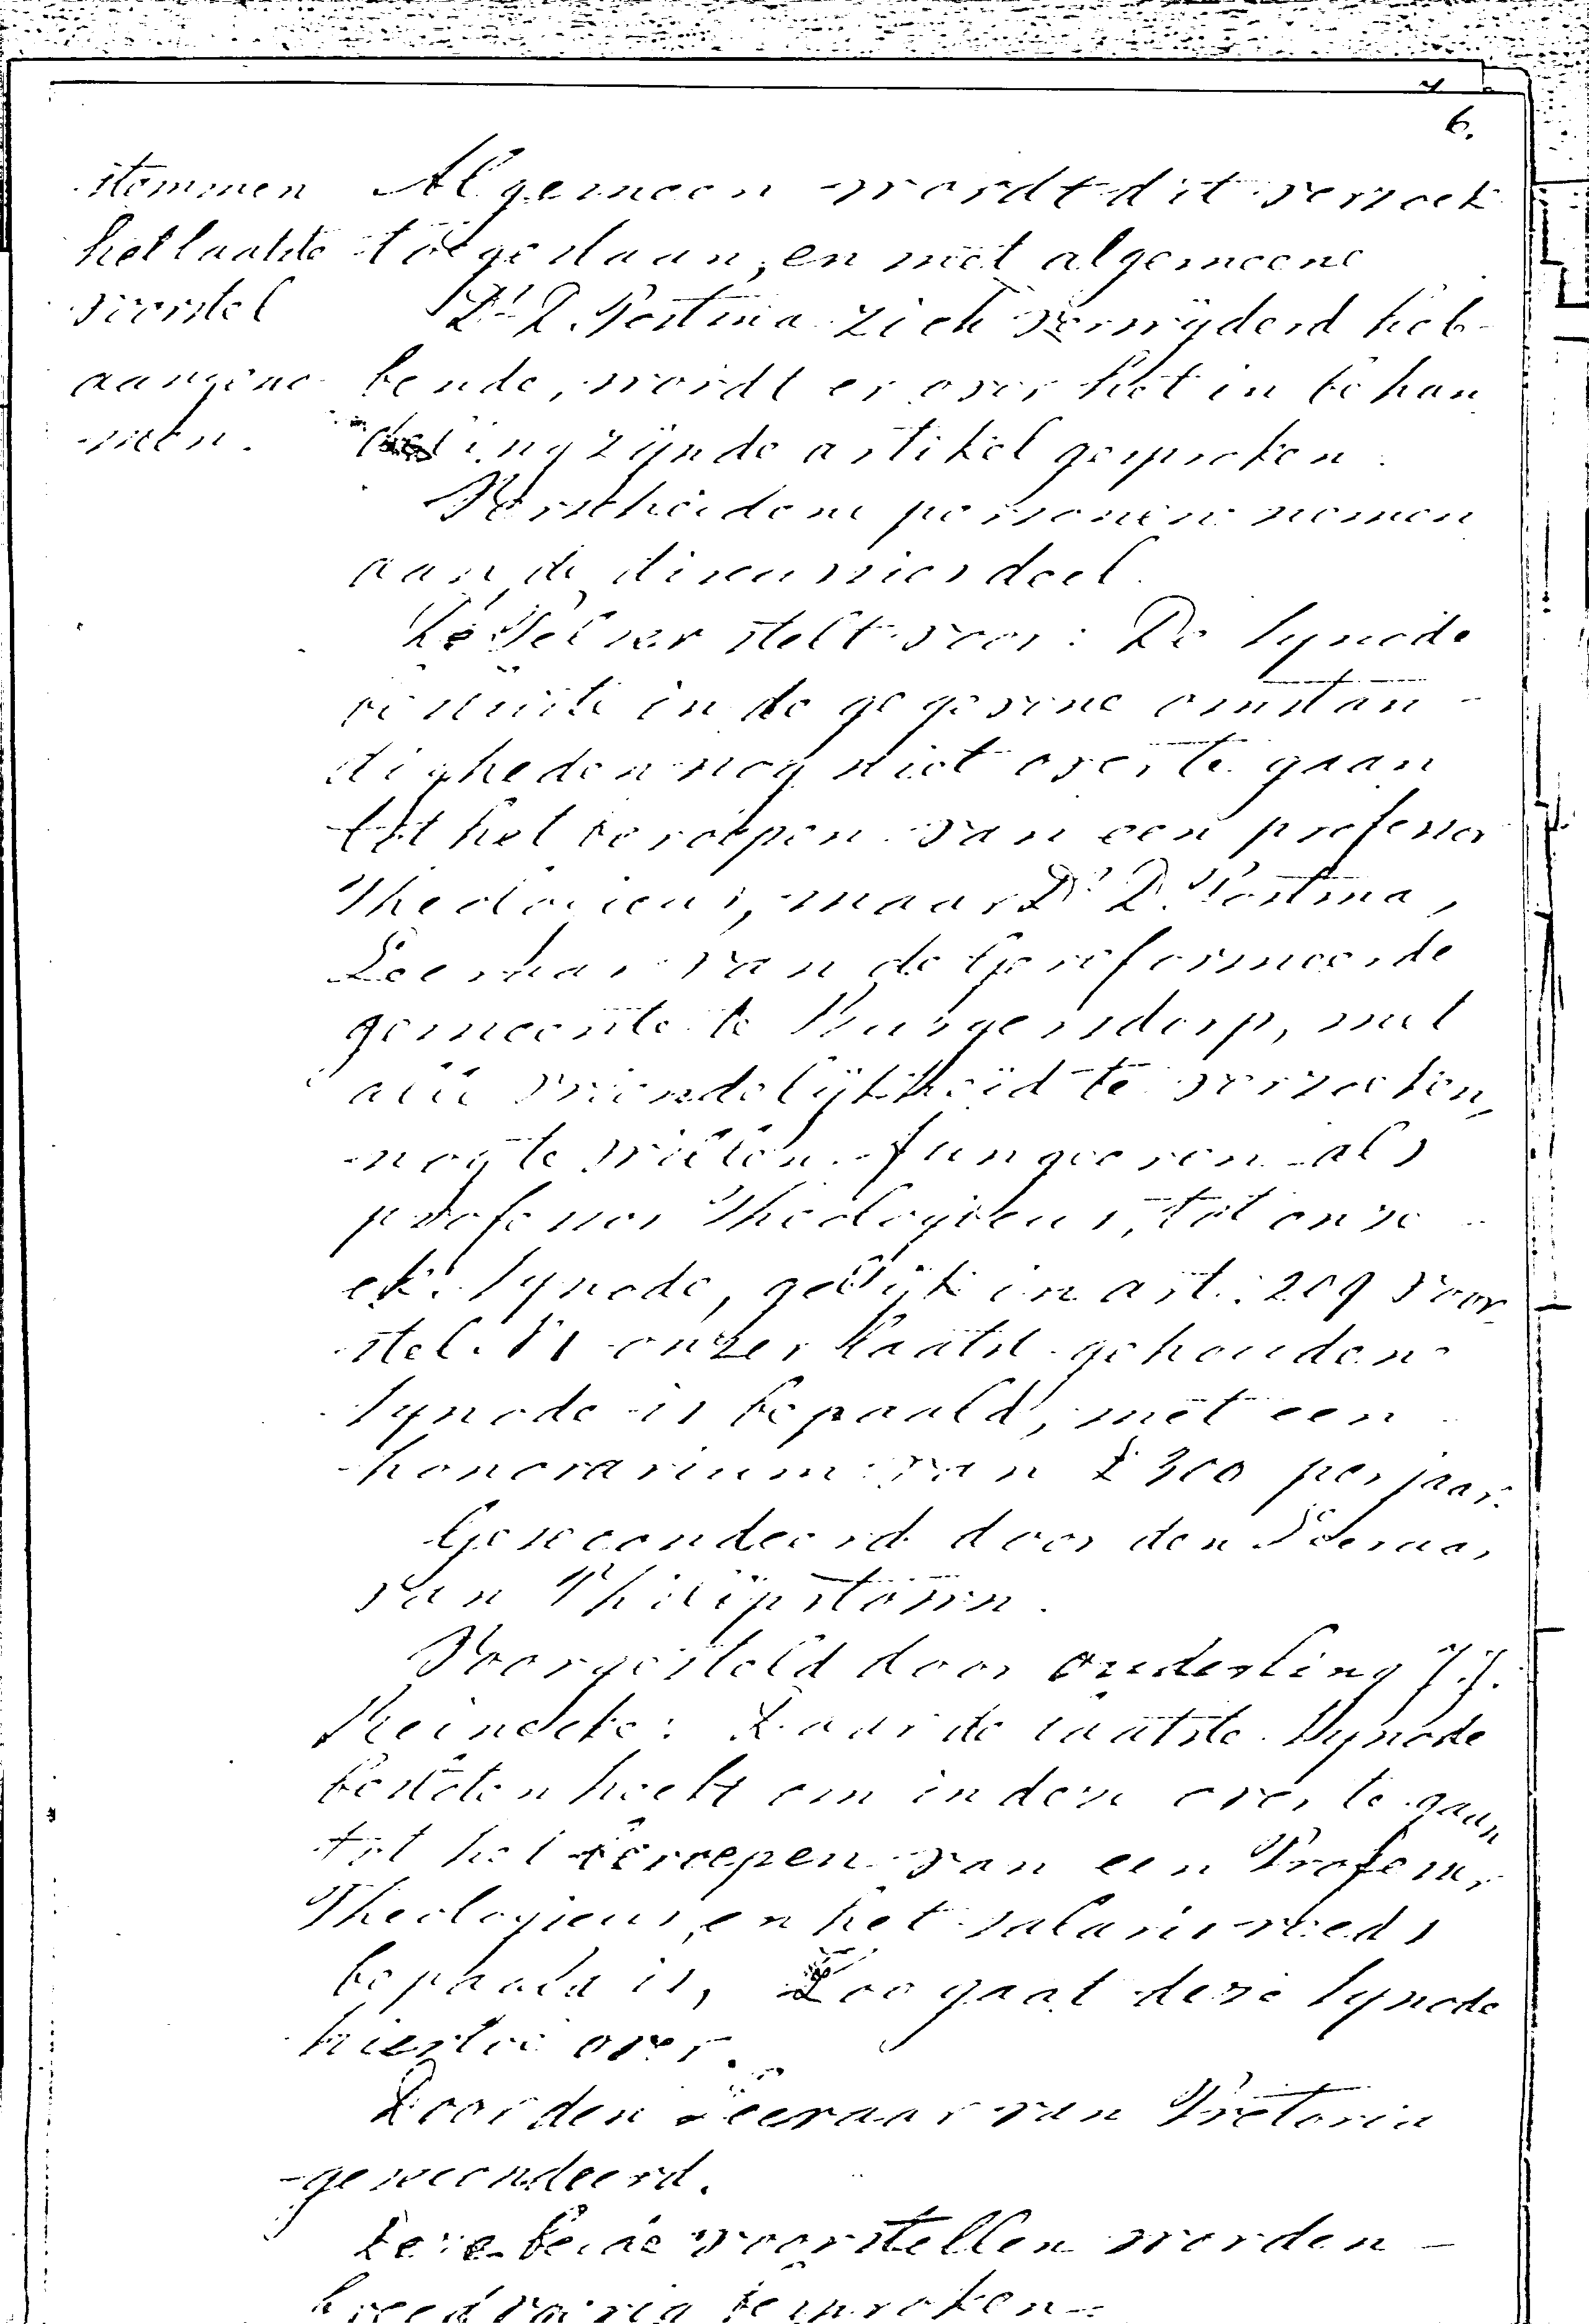 6.
stemmen
het laatste
voorstel
aangeno-
men.
Algemeen wordt dit verzoek
toegestaan, en met algemeene
Ds D. Postma zich verwijderd heb-
bende, wordt er over het in behan
deling zijnde artikel gesproken.
Verscheidene personen nemen
aan de discussies deel.
De Scriba stelt voor: De Synode
besluite in de gegevene omstan-
digheden nog niet over te gaan
tot het beroepen van een professor
Theologicus, maar Ds D. Postma,
Leeraar van de Gereformeerde
gemeente te Burgersdorp, met
alle vriendelijkheid te verzoeken,
nog te willen fungeeren als
professor Theologicus, tot onze
ek. Synode, gelijk in art. 209 voor-
stel VI onzer laatst gehouden
Synode is bepaald, met een
honorarium van £300 per jaar.
Gesecondeerd door den Leeraar
van Philipstown.
Voorgesteld door ouderling J.J.
Reinecke: Daar de laatste Synode
besloten heeft om in dezen over te gaan
tot het beroepen van een Professor
Theologicus, en het salaris reeds
bepaald is, Zoo gaat deze Synode
hiertoe over.
Door den Leeraar van Pretoria
gesecondeerd.
Deze beide voorstellen worden
breedvoerig besproken